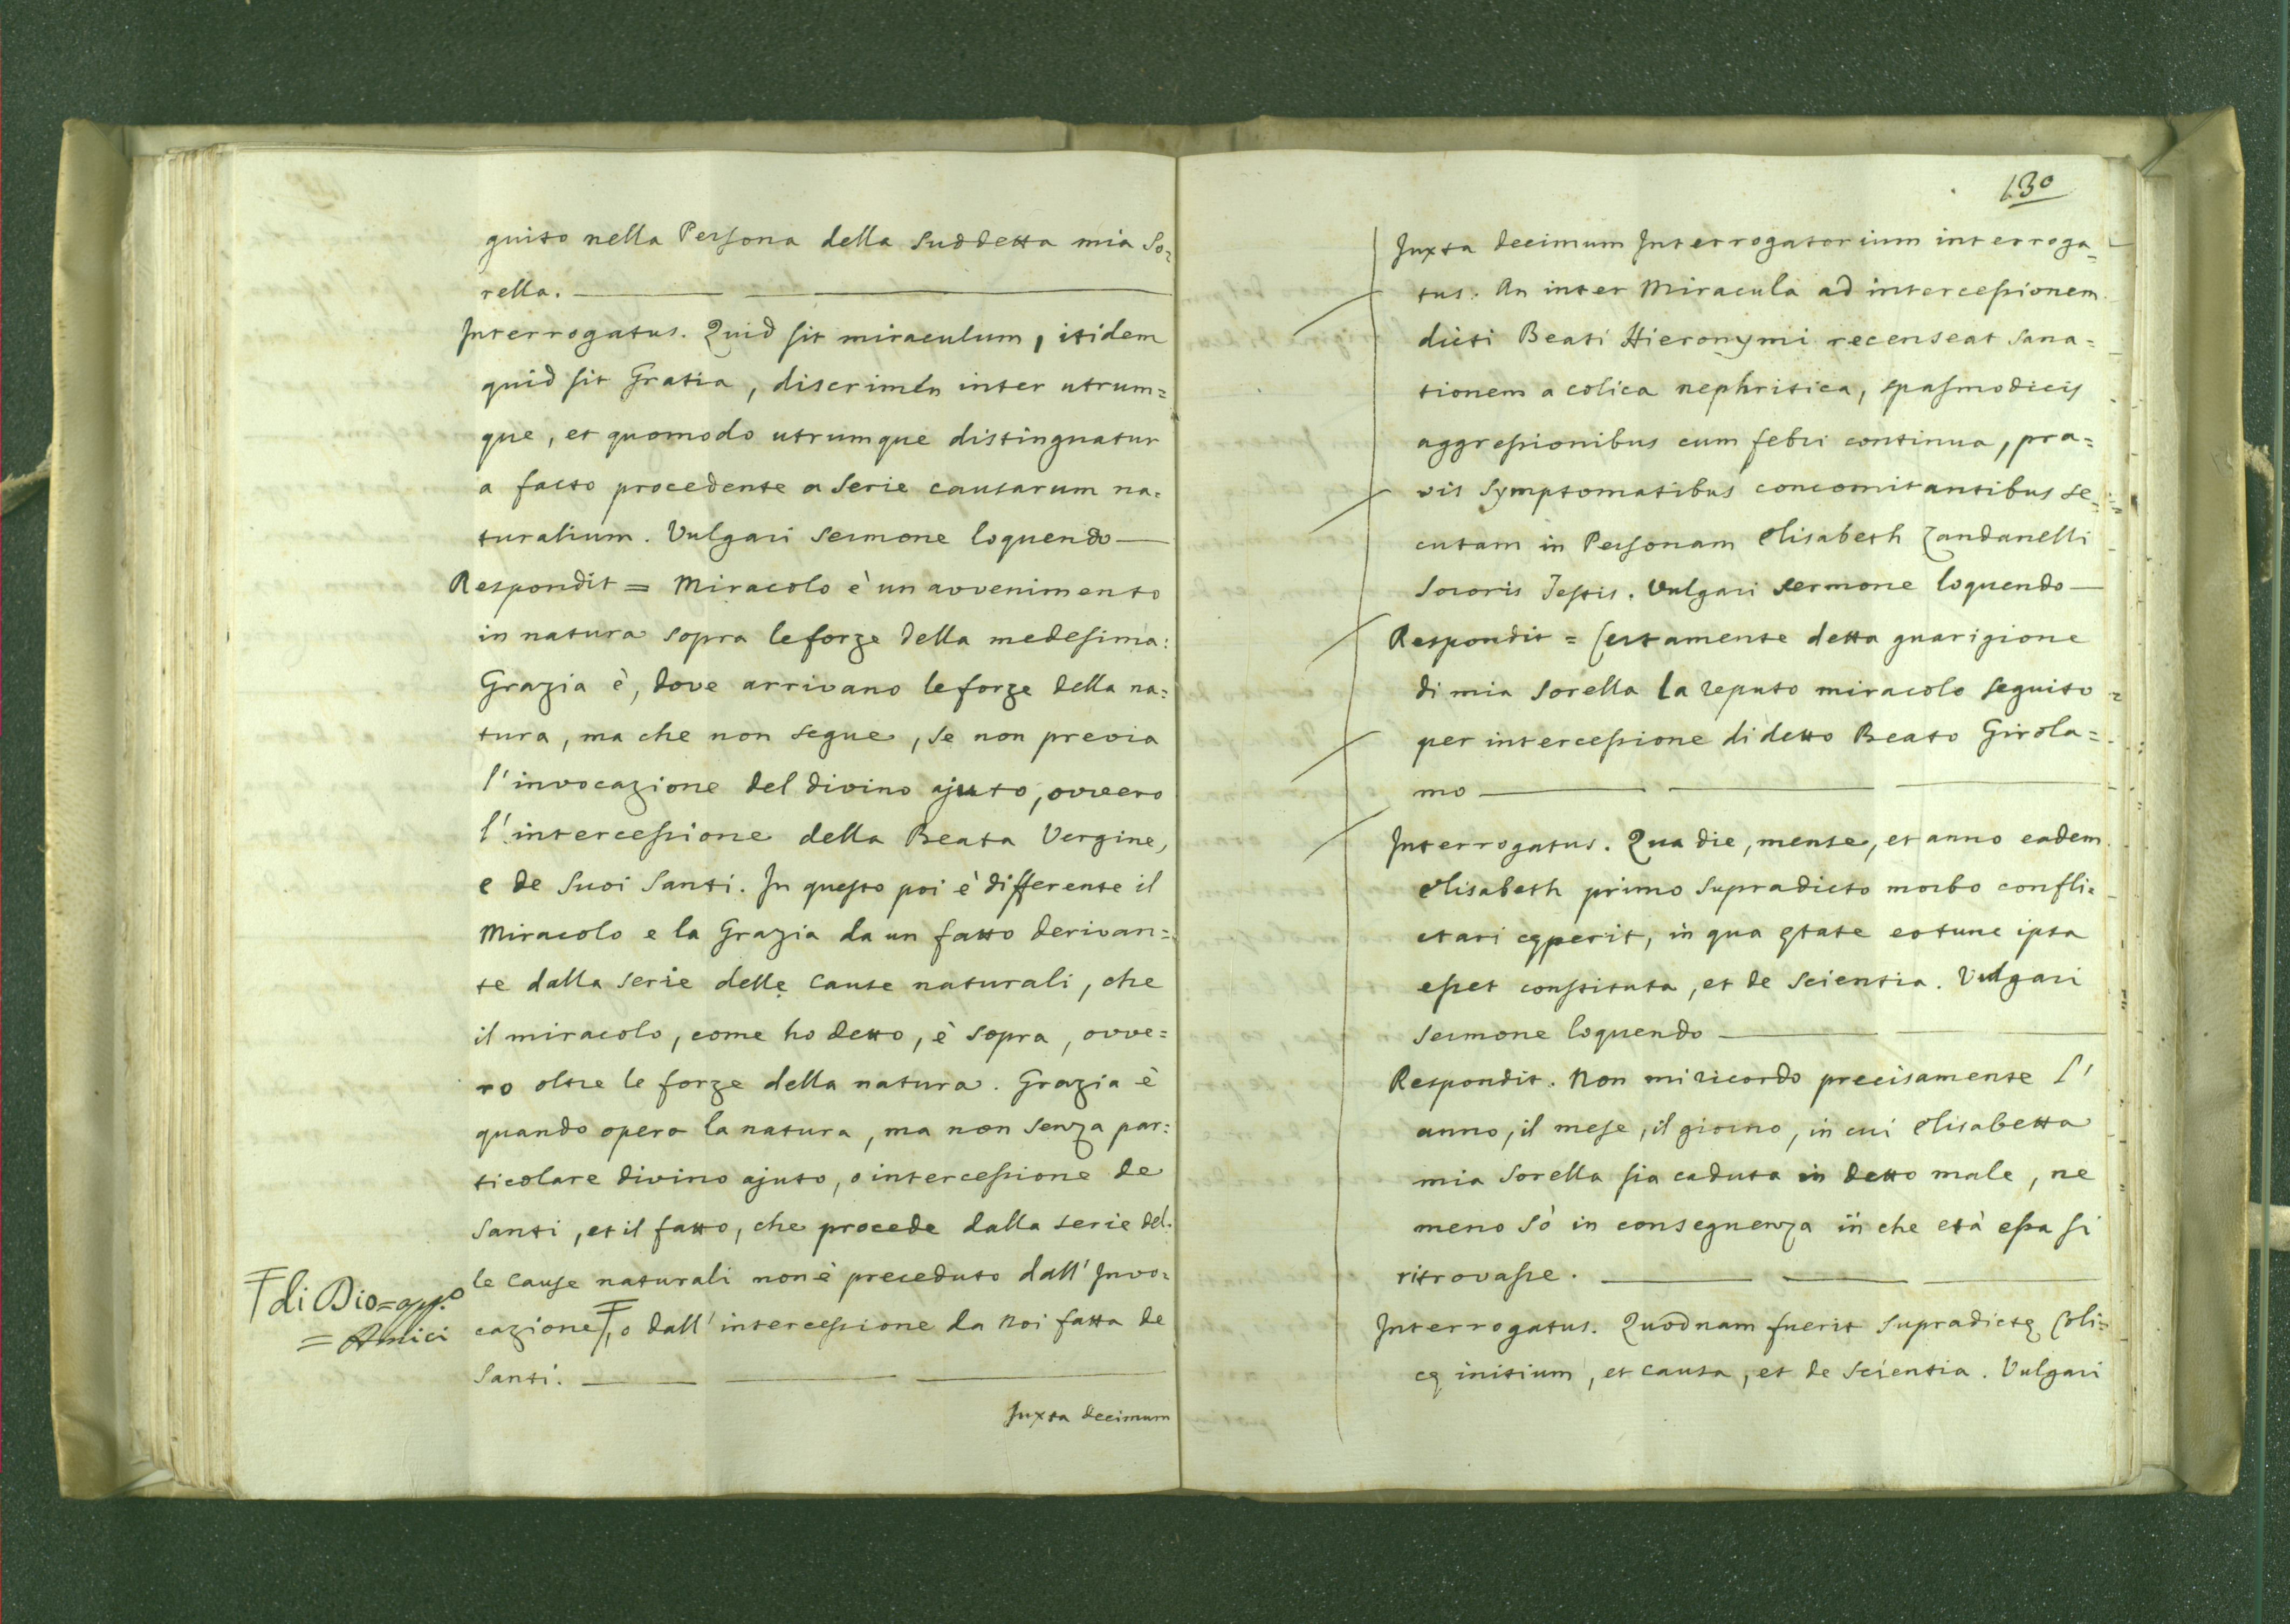 guito nella Persona della suddetta mia So-
rella.
Interrogatus. Quid sit miraculum, itidem
quid sit Gratia, discrimen inter utrum=
que, et quomodo utrumque distinguatur
a facto procedente a serie causarum na=
turalium. Vulgari sermone loquendo —
Respondit = Miracolo è un avvenimento
in natura sopra le forze della medesima:
Grazia è, dove arrivano le forze della na=
tura, ma che non segue, se non previa
l'invocazione del divino ajuto, ovvero
l'intercessione della Beata Vergine,
e de Suoi Santi. In questo poi è differente il
Miracolo e la Grazia da un fatto derivan=
te dalla serie delle Cause naturali, che
il miracolo, come ho detto, è sopra, ovve=
ro oltre le forze della natura. Grazia è
quando opera la natura, ma non senza par=
ticolare divino ajuto, o intercessione de
Santi, et il fatto, che procede dalla serie del=
le Cause naturali non è preceduto dall'Invo=
di Dio =
= Amici
cazione, o dall'intercessione da Noi fatta de
Santi.
Juxta decimum
130
Juxta decimum Interrogatorium interroga=
tus: An inter Miracula ad intercessionem
dicti Beati Hieronymi recenseat sana=
tionem a colica nephritica, spasmodicis
aggressionibus cum febri continua, pra=
vis symptomatibus concomitantibus se=
cutam in Personam Elisabeth Zandanelli
Sororis Testis. Vulgari sermone loquendo —
Respondit = Certamente detta guarigione
di mia Sorella la reputo miracolo seguito
per intercessione di detto Beato Girola=
mo
Interrogatus. Qua die, mense, et anno eadem
Elisabeth primo supradicto morbo confli=
ctari cęperit, in qua ętate eotunc ipsa
esset constituta, et de scientia. Vulgari
sermone loquendo
Respondit. Non mi ricordo precisamente l'
anno, il mese, il giorno, in cui Elisabetta
mia Sorella sia caduta in detto male, ne
meno sò in conseguenza in che età essa si
ritrovasse.
Interrogatus. Quodnam fuerit supradictę Coli=
cę initium, et causa, et de scientia. Vulgari